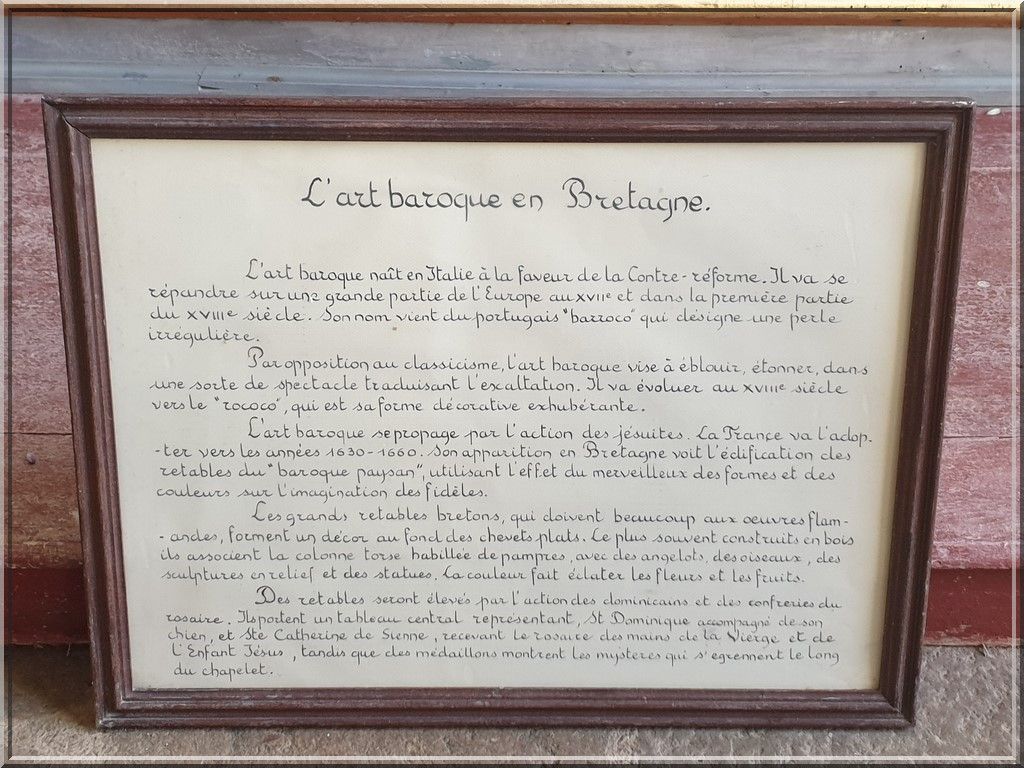 L'art baroque en Bretagne.
L'art baroque naît en Italie à la faveur de la Contre-réforme. Il va se
répandre sur une grande partie de l'Europe au XVIIe et dans la première partie
du XVIIIe siècle. Son nom vient du portugais "barroco" qui désigne une perle
irrégulière.
Par opposition au classicisme, l'art baroque vise à éblouir, étonner, dans
une sorte de spectacle traduisant l'exaltation. Il va évoluer au XVIIIe siècle
vers le "rococo", qui est sa forme décorative exhubérante.
L'art baroque se propage par l'action des jésuites. La France va l'adop-
-ter vers les années 1630-1660. Son apparition en Bretagne voit l'édification des
retables du "baroque paysan", utilisant l'effet du merveilleux des formes et des
couleurs sur l'imagination des fidèles.
Les grands retables bretons, qui doivent beaucoup aux oeuvres flam-
-andes, forment un décor au fond des chevets plats. Le plus souvent construits en bois
ils associent la colonne torse habillée de pampres, avec des angelots, des oiseaux, des
sculptures en relief et des statues. La couleur fait éclater les fleurs et les fruits.
Des retables seront élevés par l'action des dominicains et des confreries du
rosaire. Ils portent un tableau central representant, St Dominique accompagné de son
chien, et Ste Catherine de Sienne, recevant le rosaire des mains de la Vierge et de
l'Enfant Jésus, tandis que des médaillons montrent les mysteres qui s'egrennent le long
du chapelet.